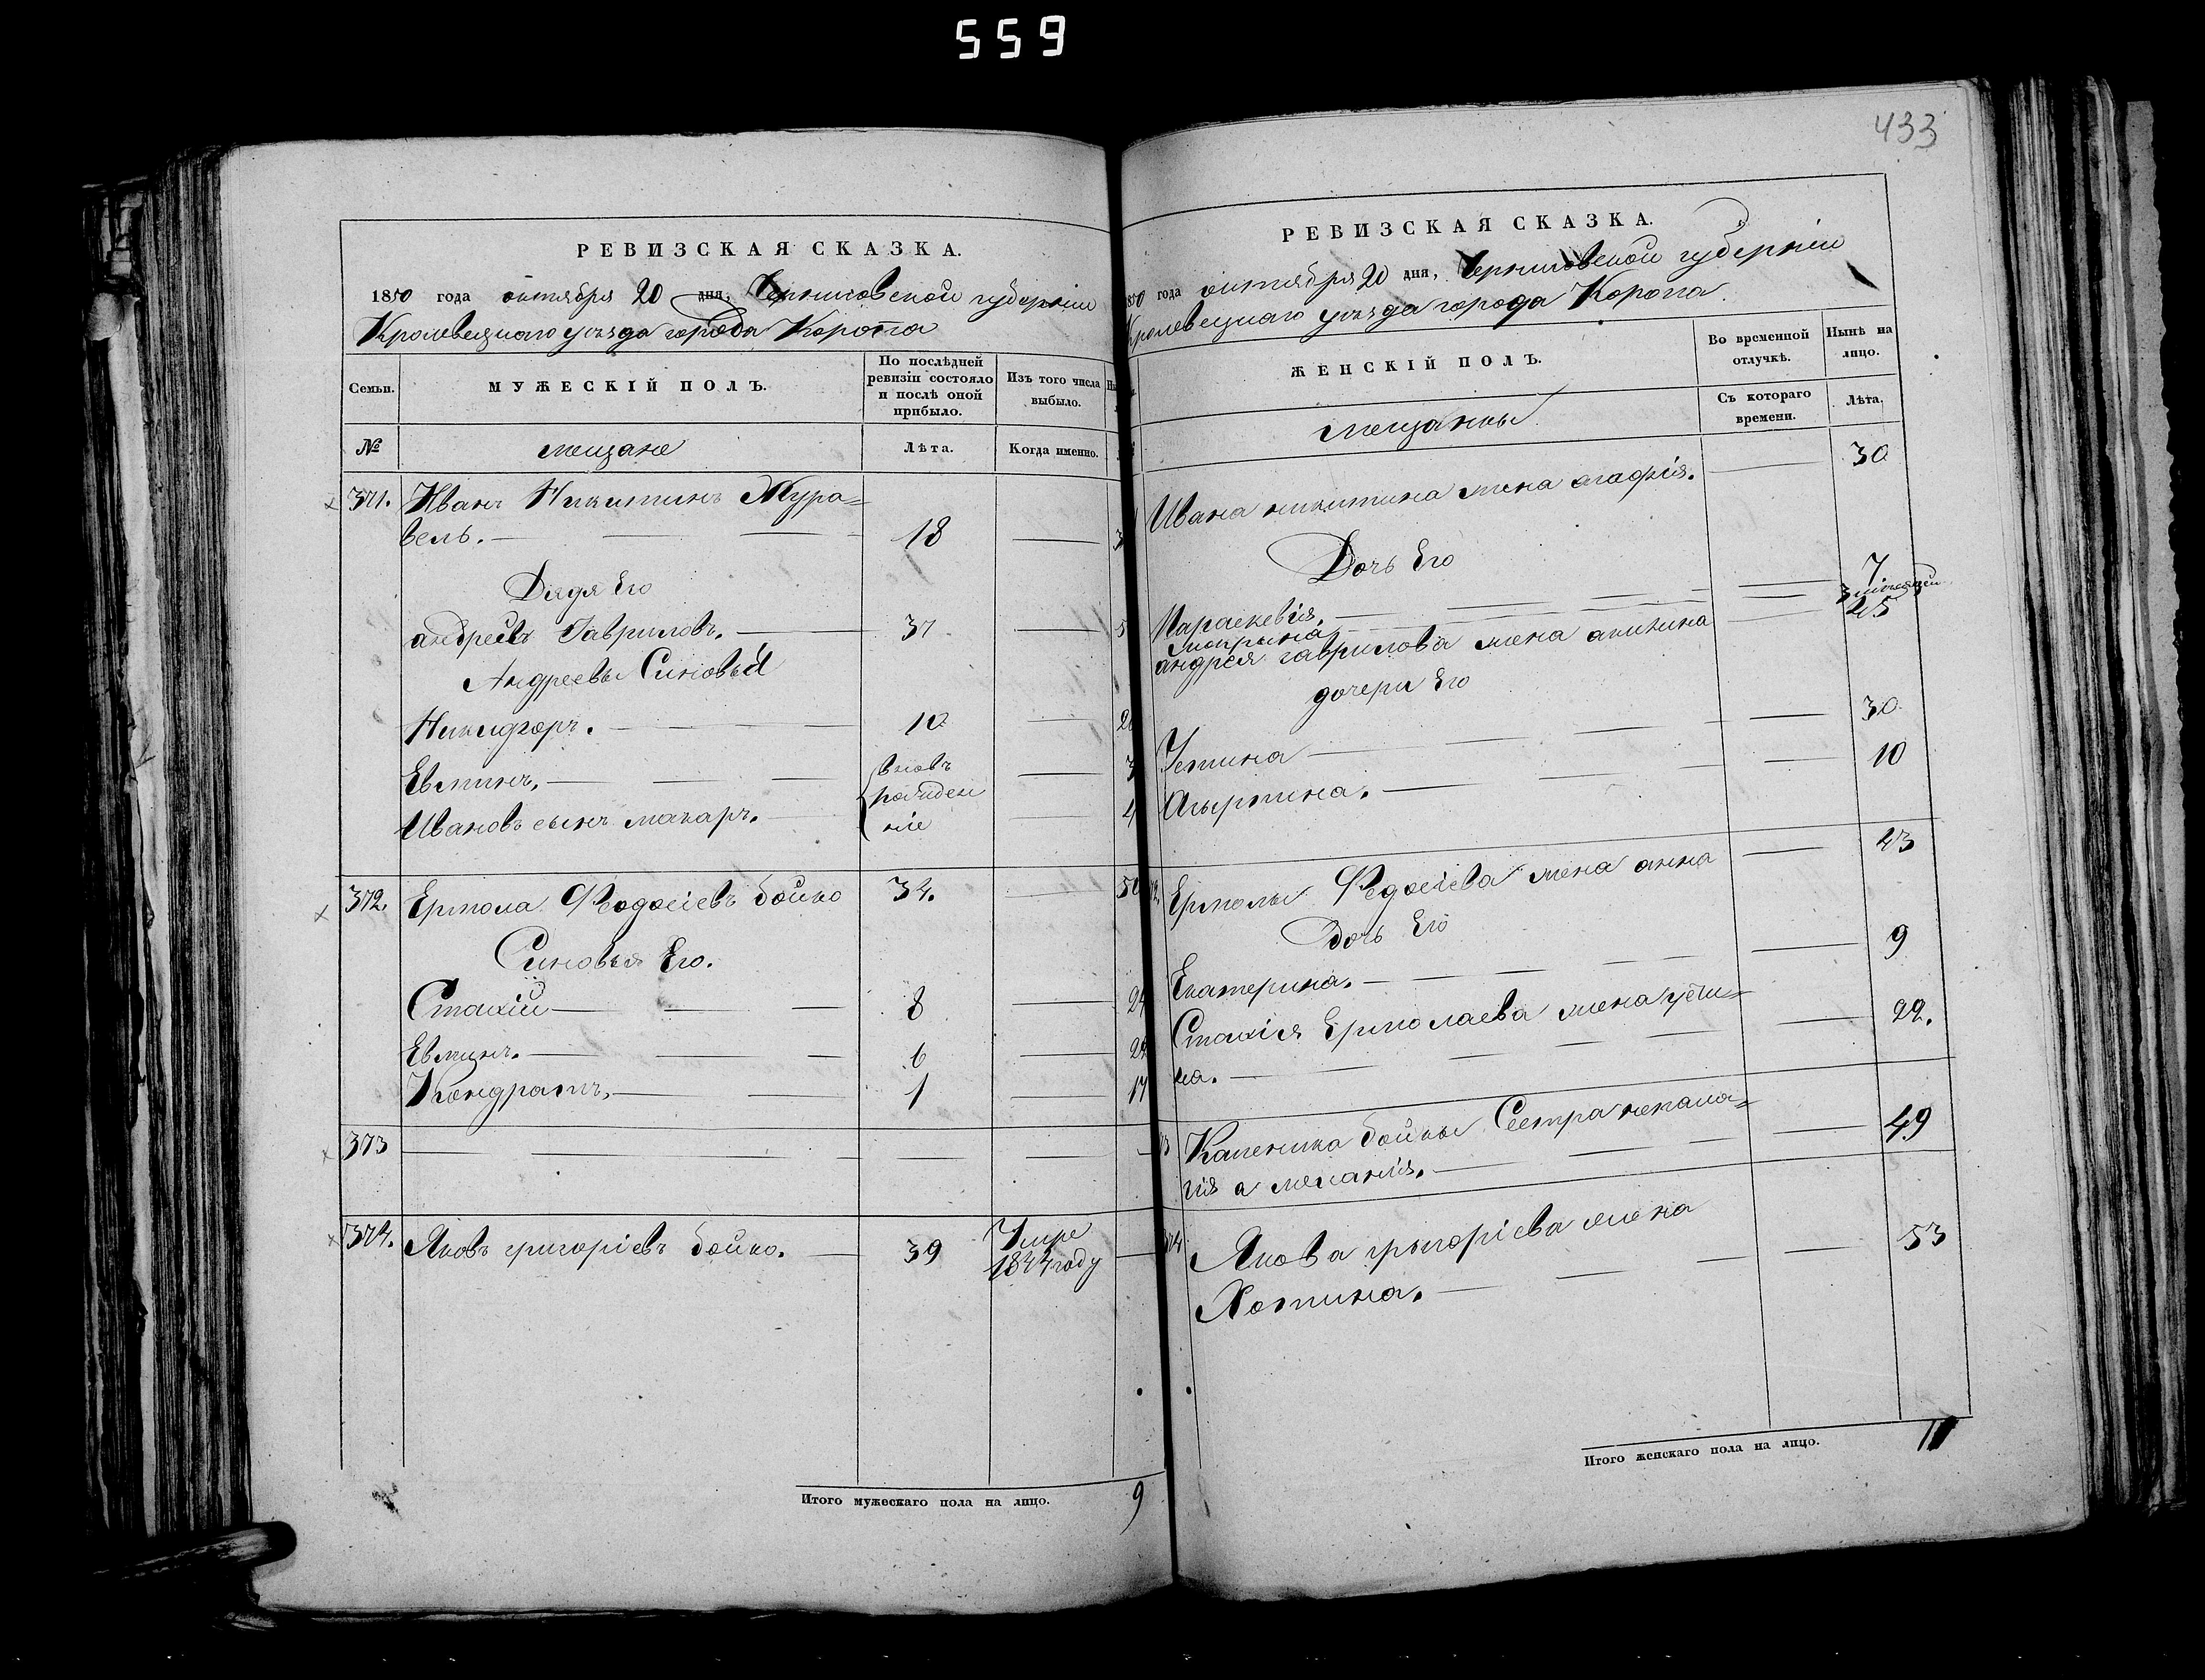 559
433
РЕВИЗСКАЯ СКАЗКА.
1850 года октября 20 дня, Черниговской губернии
Кролевецкаго уезда города Коропа
Семьи. МУЖЕСКІЙ ПОЛЪ. По послѣдней ревизіи состояло и послѣ оной прибыло. Изъ того числа выбыло.
№ мещане Лѣта. Когда именно.
371. Иванъ Никитинъ Жура=
вель. 18
Дядя Его
андреевъ Гавриловъ. 37
Андреевы Синовья
Никифоръ. 10
Евтихъ. вновь
рожден
Ивановъ сынъ макаръ. ніе
372. Ермола Федосіевъ бойко 34.
Синовья Его.
Стахій 8
Евтихъ. 6
Кондратъ. 1
373
374. Яковъ григоріевъ бойко. 39 Умре
1844 году
Итого мужескаго пола на лицо. 9
РЕВИЗСКАЯ СКАЗКА.
1850 года октября 20 дня, Черниговской губерніи
Кролевецкаго уезда города Коропа
ЖЕНСКІЙ ПОЛЪ. Во временной отлучкѣ. Нынѣ на лицо.
мещанки Съ котораго времени. Лѣта.
Ивана никитина жена агафія. 30
Дочь Его
Параскевія. 7
мокрина
андрея гаврилова жена акилина 45
дочери Его
Устина 30.
Агырпина. 10
Ермолы Федосіева жена анна 43
Дочь Его
Екатерина. 9
Стахія Ермолаева жена усти=
на. 22.
Каленика бойки Сестра
меланія. 49
Якова григоріева жена
Хотина. 53
Итого женскаго пола на лицо. 11